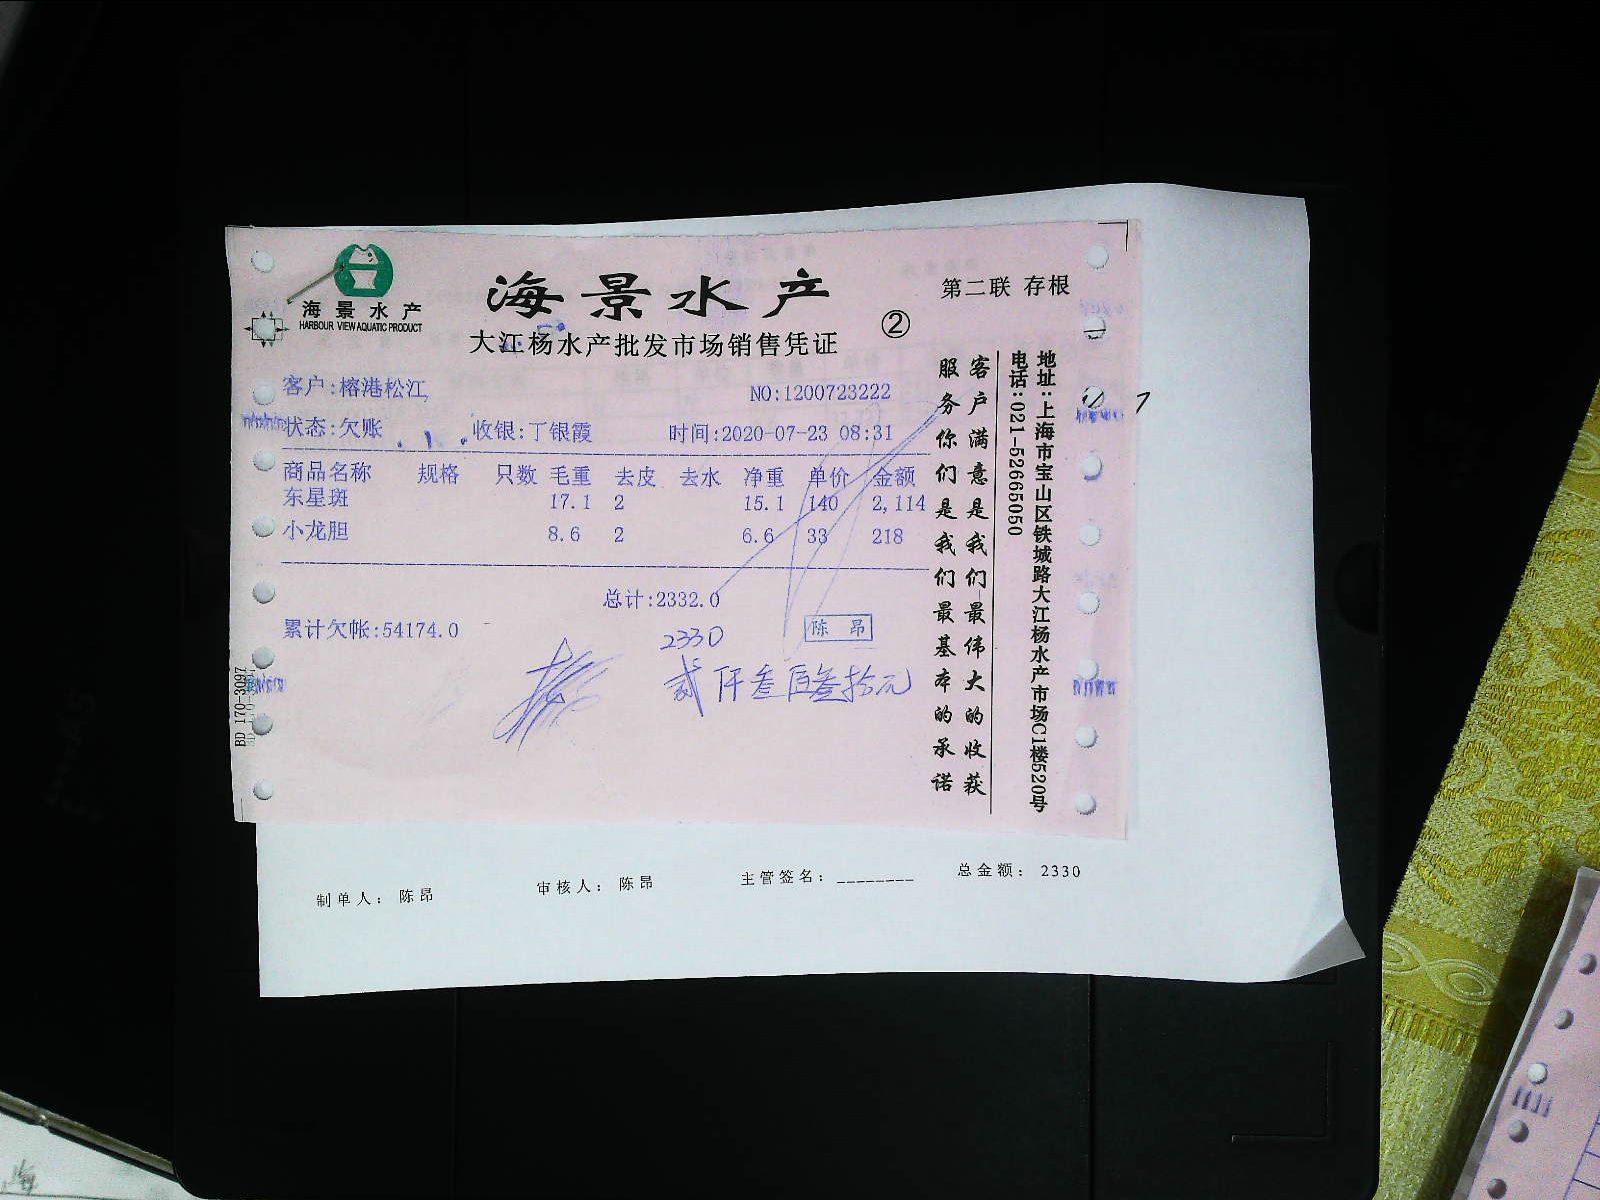 海景水产
HARBOUR VIEW AQUATIC PRODUCT
海景水产
第二联 存根
②
大江杨水产批发市场销售凭证
客户:榕港松江
NO:1200723222
状态:欠账 收银:丁银霞 时间:2020-07-23 08:31
商品名称 规格 只数 毛重 去皮 去水 净重 单价 金额
东星斑 17.1 2 15.1 140 2,114
小龙胆 8.6 2 6.6 33 218
总计:2332.0
累计欠帐:54174.0
2330
陈昂
贰仟叁佰叁拾元
客户满意是我们最伟大的收获
服务你们是我们最基本的承诺
地址:上海市宝山区铁城路大江杨水产市场C1楼520号
电话:021-52665050
BD 170-3097
制单人: 陈昂 审核人: 陈昂 主管签名: ________ 总金额: 2330